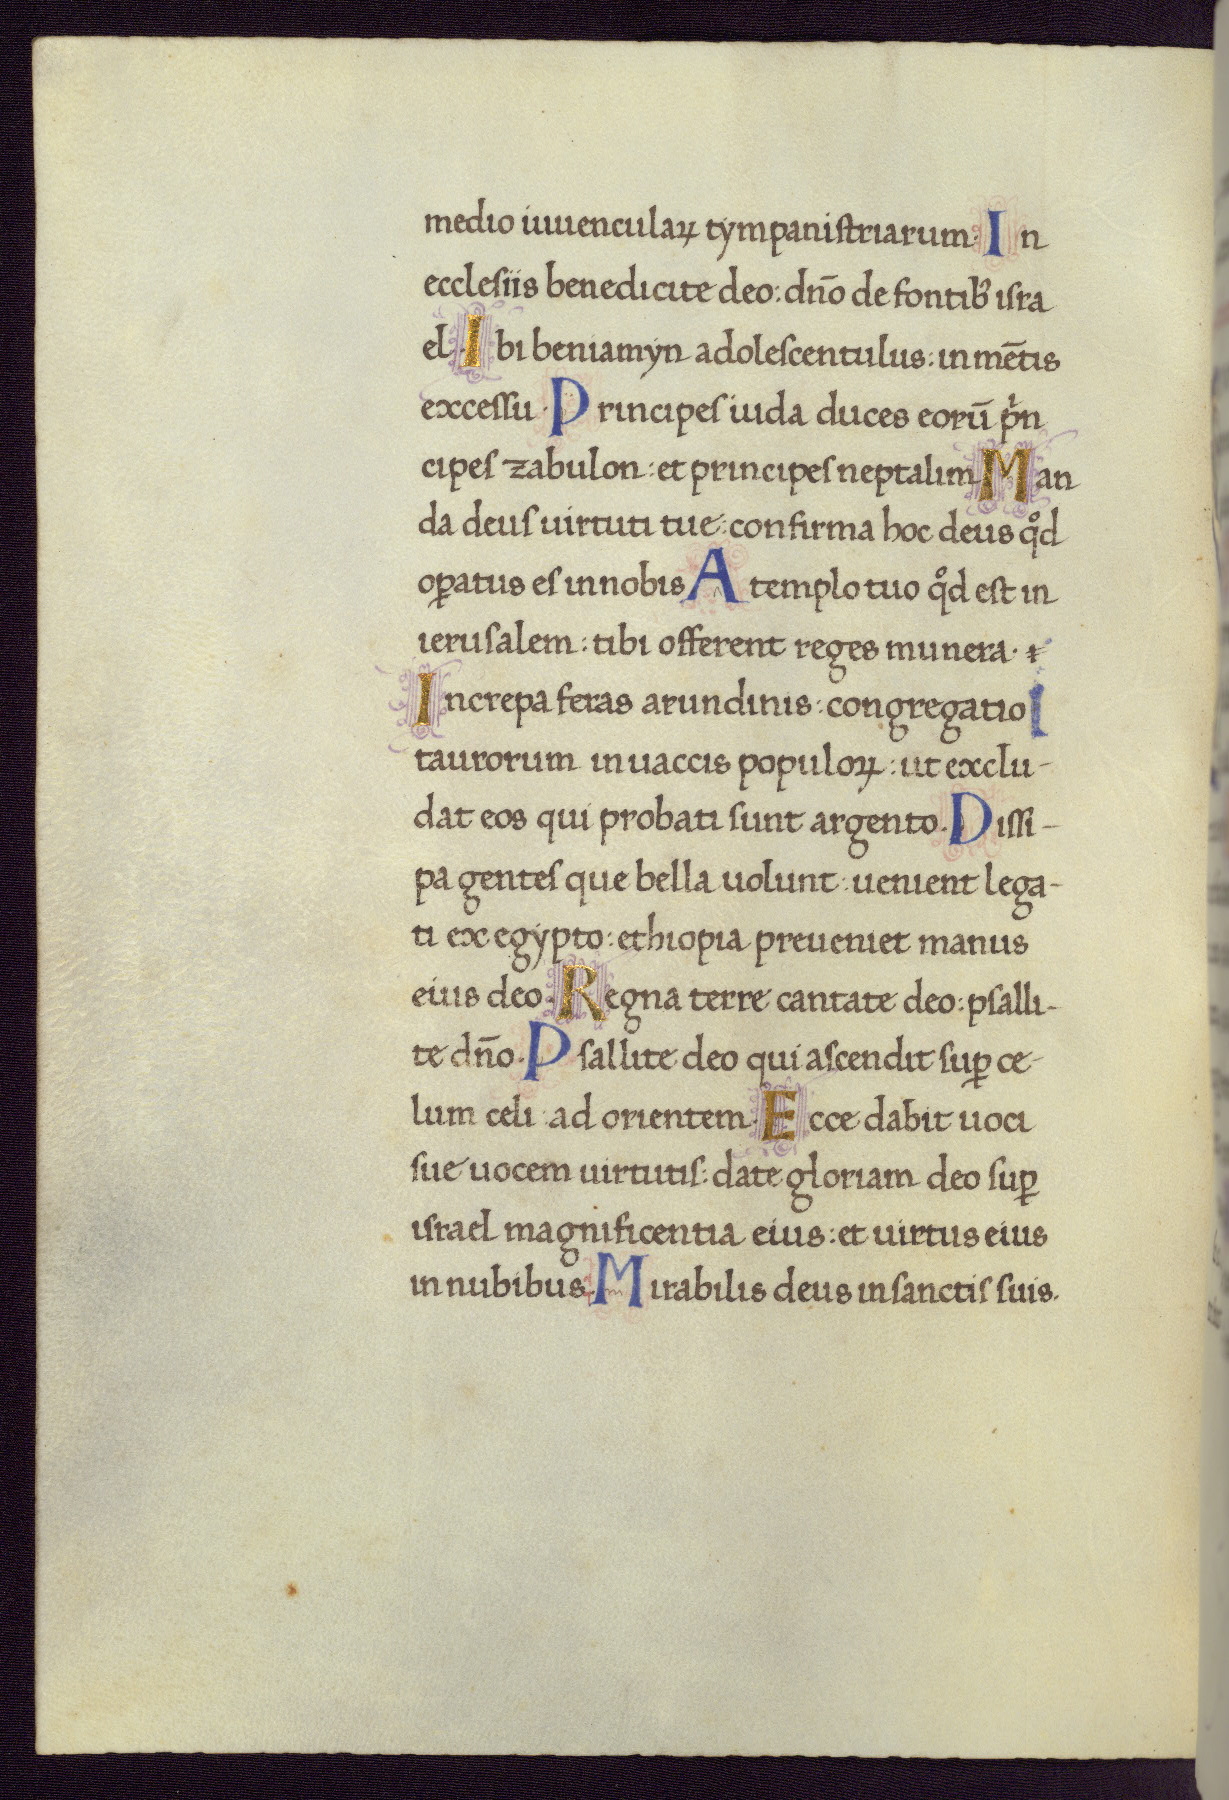 medio iuuenculaꝝ tympanistriarum: In
ecclesiis benedicite deo: dño de fontib; isra
el. Ibi beniamyn adolescentulus: in mētis
excessu. Principes iuda duces eorū pⁱn
cipes zabulon: et principes neptalim Man
da deus uirtuti tue: confirma hoc deus qͦd
oꝑatus es in nobis A templo tuo qͦd est in
ierusalem: tibi offerent reges munera.
Increpa feras arundinis: congregatio
taurorum in uaccis populoꝝ: ut exclu-
dat eos qui probati sunt argento. Dissi-
pa gentes que bella uolunt: uenient lega-
ti ex egypto: ethiopia preueniet manus
eius deo. Regna terre cantate deo: psalli-
te dño. Psallite deo qui ascendit suꝑ ce-
lum celi: ad orientem. Ecce dabit uoci
sue uocem uirtutis: date gloriam deo suꝑ
israel magnificentia eius: et uirtus eius
in nubibus. Mirabilis deus in sanctis suis.